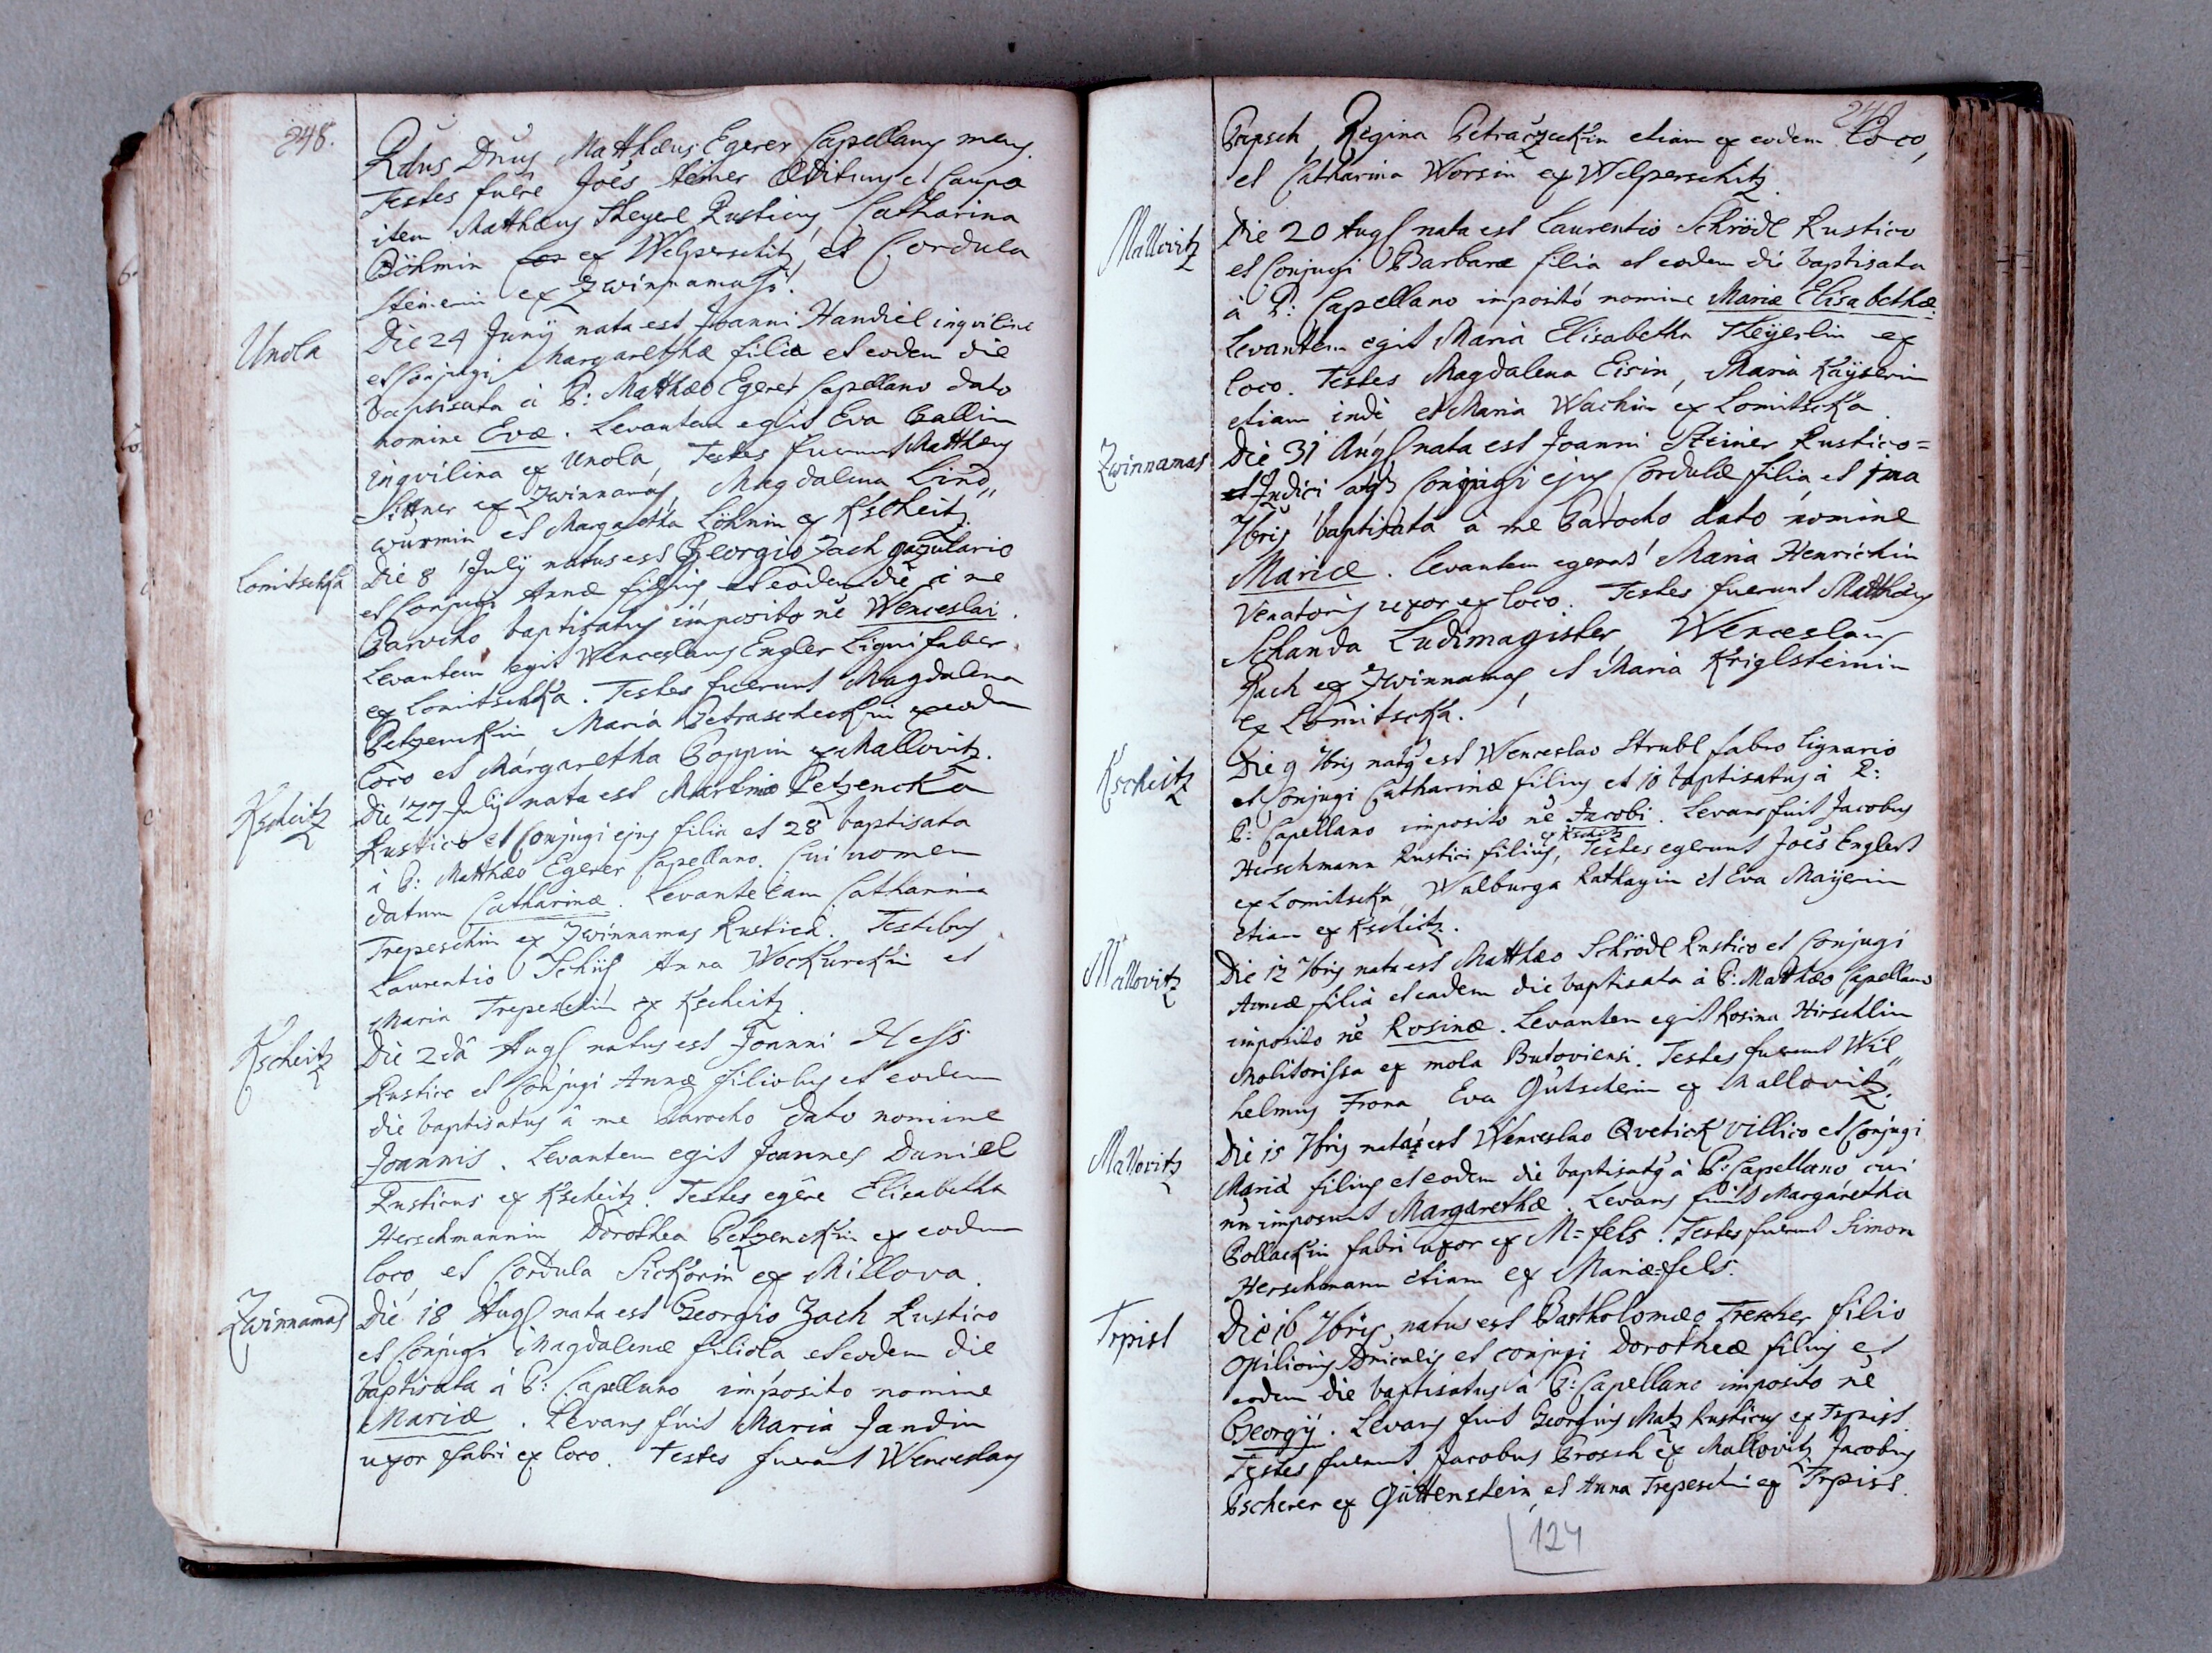 248.
Rdus Dnus Matthæus Egerer Capellanus meus.
Testes fuêre Joês Steiner Ædituus et Caupo
item Matthæus Theyerl Rusticus, Catharina
Böhmin ex Welperschitz, et Cordula
Steinerin ex Zwinnamass.
Unola
Die 24 Junij nata est Joanni Handiel inquilino
et Conjugi Margarethæ filia et eodem die
baptisata à P: Matthæo Egerer Capellano dato
nomine Evæ. Levantem egit Eva Gallin
inqvilina ex Unola, Testes fuerunt Matthæus
Sittner ex Zwinnamas, Magdalena Lind„
wurmin et Margaretha Löhnin ex Kscheitz.
Lomitschka
Die 8 July natus est Georgio Zach gazulario
et Conjugi Annæ filius et eodem die à me
Parocho baptisatus imposito nê Wenceslai.
Levantem egit Wenceslaus Engler Lignifaber
ex Lomitschka. Testes fuerunt Magdalena
Petzenckin Maria Petrascheckin ex eodem
loco et Margaretha Poppin ex Mallovitz.
Kscheitz
Die 27 July nata est Martino Petzencka
Rustico et Conjugi ejus filia et 28 baptisata
à P: Matthæo Egerer Capellano. Cui nomen
datum Catharinæ. Levante eam Catharina
Trepeschin ex Zwinnamas Rustica. Testibus
Laurentio Schüs Anna Wockurckin et
Maria Trepeschin ex Kscheitz.
Kscheitz
Die 2dâ Augs natus est Joanni Hess
Rustico et Conjugi Annæ filiolus et eodem
die baptisatus â me Parocho dato nomine
Joannis. Levantem egit Joannes Daniel
Rusticus ex Kscheitz. Testes egêre Elisabetha
Herschmannin Dorothea Petzenckin ex eodem
loco et Cordula Sickorin ex Millova.
Zwinnamas
Die 18 Augs nata est Georgio Zach Rustico
et Conjugi Magdalenæ filiola et eodem die
baptisata à P: Capellano imposito nomine
Mariæ. Levans fuit Maria Jandin
uxor fabri ex loco. Testes fuerunt Wenceslaus
249
Pripsch, Regina Petraczeckin etiam ex eodem loco,
et Catharina Worsin ex Welperschitz.
Mallovitz
Die 20 Augs nata est Laurentio Schrödl Rustico
et Conjugi Barbaræ filia et eodem die baptisata
à P: Capellano impositô nomine Mariæ Elisabethæ.
Levantem egit Maria Elisabetha Theyerlin ex
loco. Testes Magdalena Eisin, Maria Kayserin
etiam inde et Maria Wachin ex Lomitscka.
Zwinnamas
Die 31 Augs nata est Joanni Steiner Rustico=
et Judici Conjugi ejus Cordulæ filia et 1ma
7bris baptisata a me Parocho dato nomine
Mariæ. Levantem egerat Maria Henrichin
Venatoris uxor ex loco. Testes fuerunt Matthæus
Schanda Ludimagister, Wenceslaus
Pach ex Zwinnamas et Maria Kriglsteinin
ex Lomitscka.
Kscheitz
Die 9 7bris natus est Wenceslao Strubl fabro lignario
et Conjugi Catharinæ filius et 10 baptisatus à R:
P: Capellano imposito nê Jacobi. Levans fuit Jacobus
Herschmann Rustici filius, ex Kscheitz Testes egerunt Joês Englert
ex Lomitscka, Walburga Rathayin et Eva Mayerin
etiam ex Kscheitz.
Mallovitz
Die 12 7bris nata est Matthæo Schrödl Rustico et Conjugi
Annæ filia et eadem die baptisata à P: Matthæo Capellano
imposito nê Rosinæ. Levantem egit Rosina Hirschlin
Molitorissa ex mola Butoviensi. Testes fuerunt Wil„
helmus Frona Eva Gutscherin ex Mallovitz.
Mallovitz
Die 15 7bris nata est Wenceslao Qvetick villico et Conjugi
Maria filius et eodem die baptisatus à P: Capellano cui
nên imposuit Margarethæ. Levans fuit Margaretha
Pollackin fabri uxor ex M=fels. Testes fuerunt Simon
Herschmann etiam ex Mariæ=fels.
Trpist
Die 16 7bris natus est Bartholomæo Trescher filio
Opilionis Dnicalis et conjugi Dorotheæ filius et
eodem die baptisatus à P: Capellano imposito nê
Georgÿ. Levans fuit Georgius Matz Rusticus ex Trpist.
Testes fuerunt Jacobus Prosch ex Mallovitz Jacobus
Pscherer ex Guttenstein, et Anna Trepeschin ex Trpist.
124